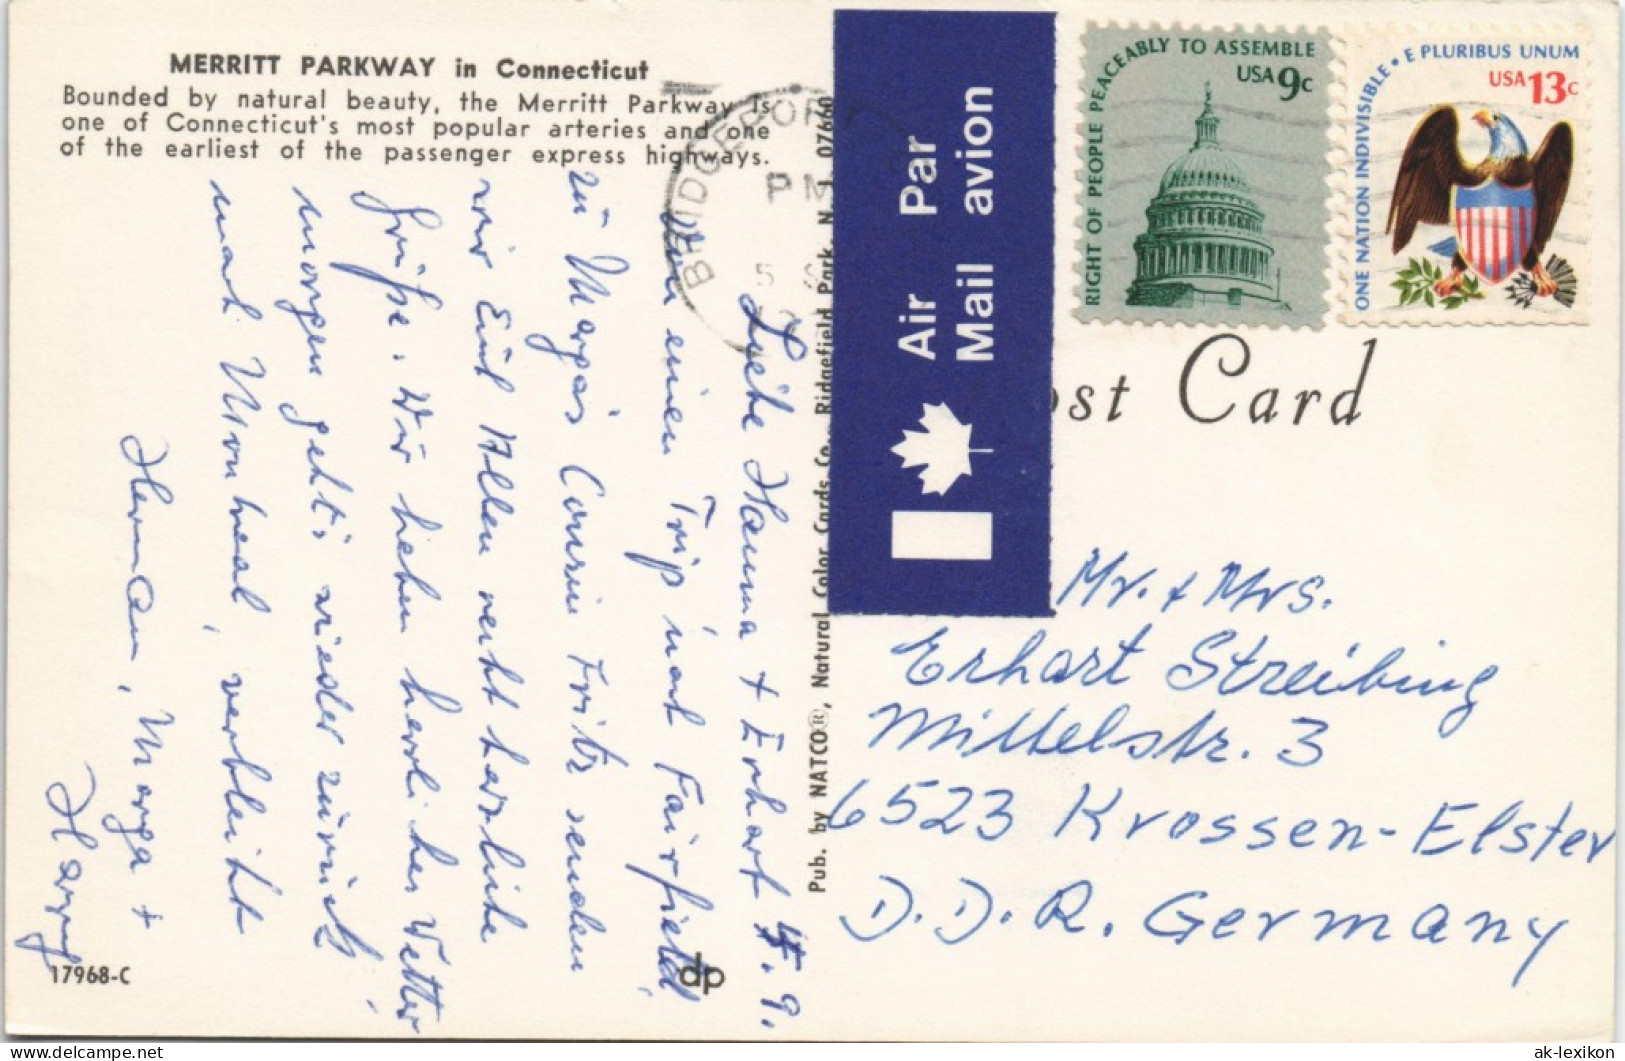 MERRITT PARKWAY in Connecticut
Bounded by natural beauty, the Merritt Parkway is
one of Connecticut's most popular arteries and one
of the earliest of the passenger express highways.
4. 9.
Liebe Hanna + Erhart
Von einem Trip nach Fairfield
zu Margas Cousin Fritz senden
wir Euch Allen recht herzliche
Grüße. Wir haben herrliches Wetter
morgen geht's wieder zurück
nach Montreal, verbleibt
Herman, Marga +
Harry
17968-C
dp
Pub. by NATCO®, Natural Color Cards Co., Ridgefield Park, N. J. 07660
BRIDGEPOR
PM
5 S
Air Par
Mail avion
RIGHT OF PEOPLE PEACEABLY TO ASSEMBLE
USA 9c
ONE NATION INDIVISIBLE • E PLURIBUS UNUM
USA 13c
ost Card
Mr. + Mrs.
Erhart Streibing
Mittelstr. 3
6523 Krossen-Elster
D.D.R. Germany
ak-lexikon.com